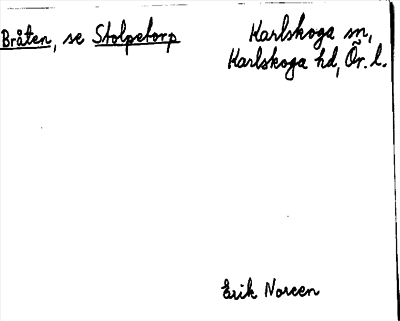 Bråten, se Stolpetorp
Karlskoga sn,
Karlskoga hd, Ör. l.
Erik Noreen